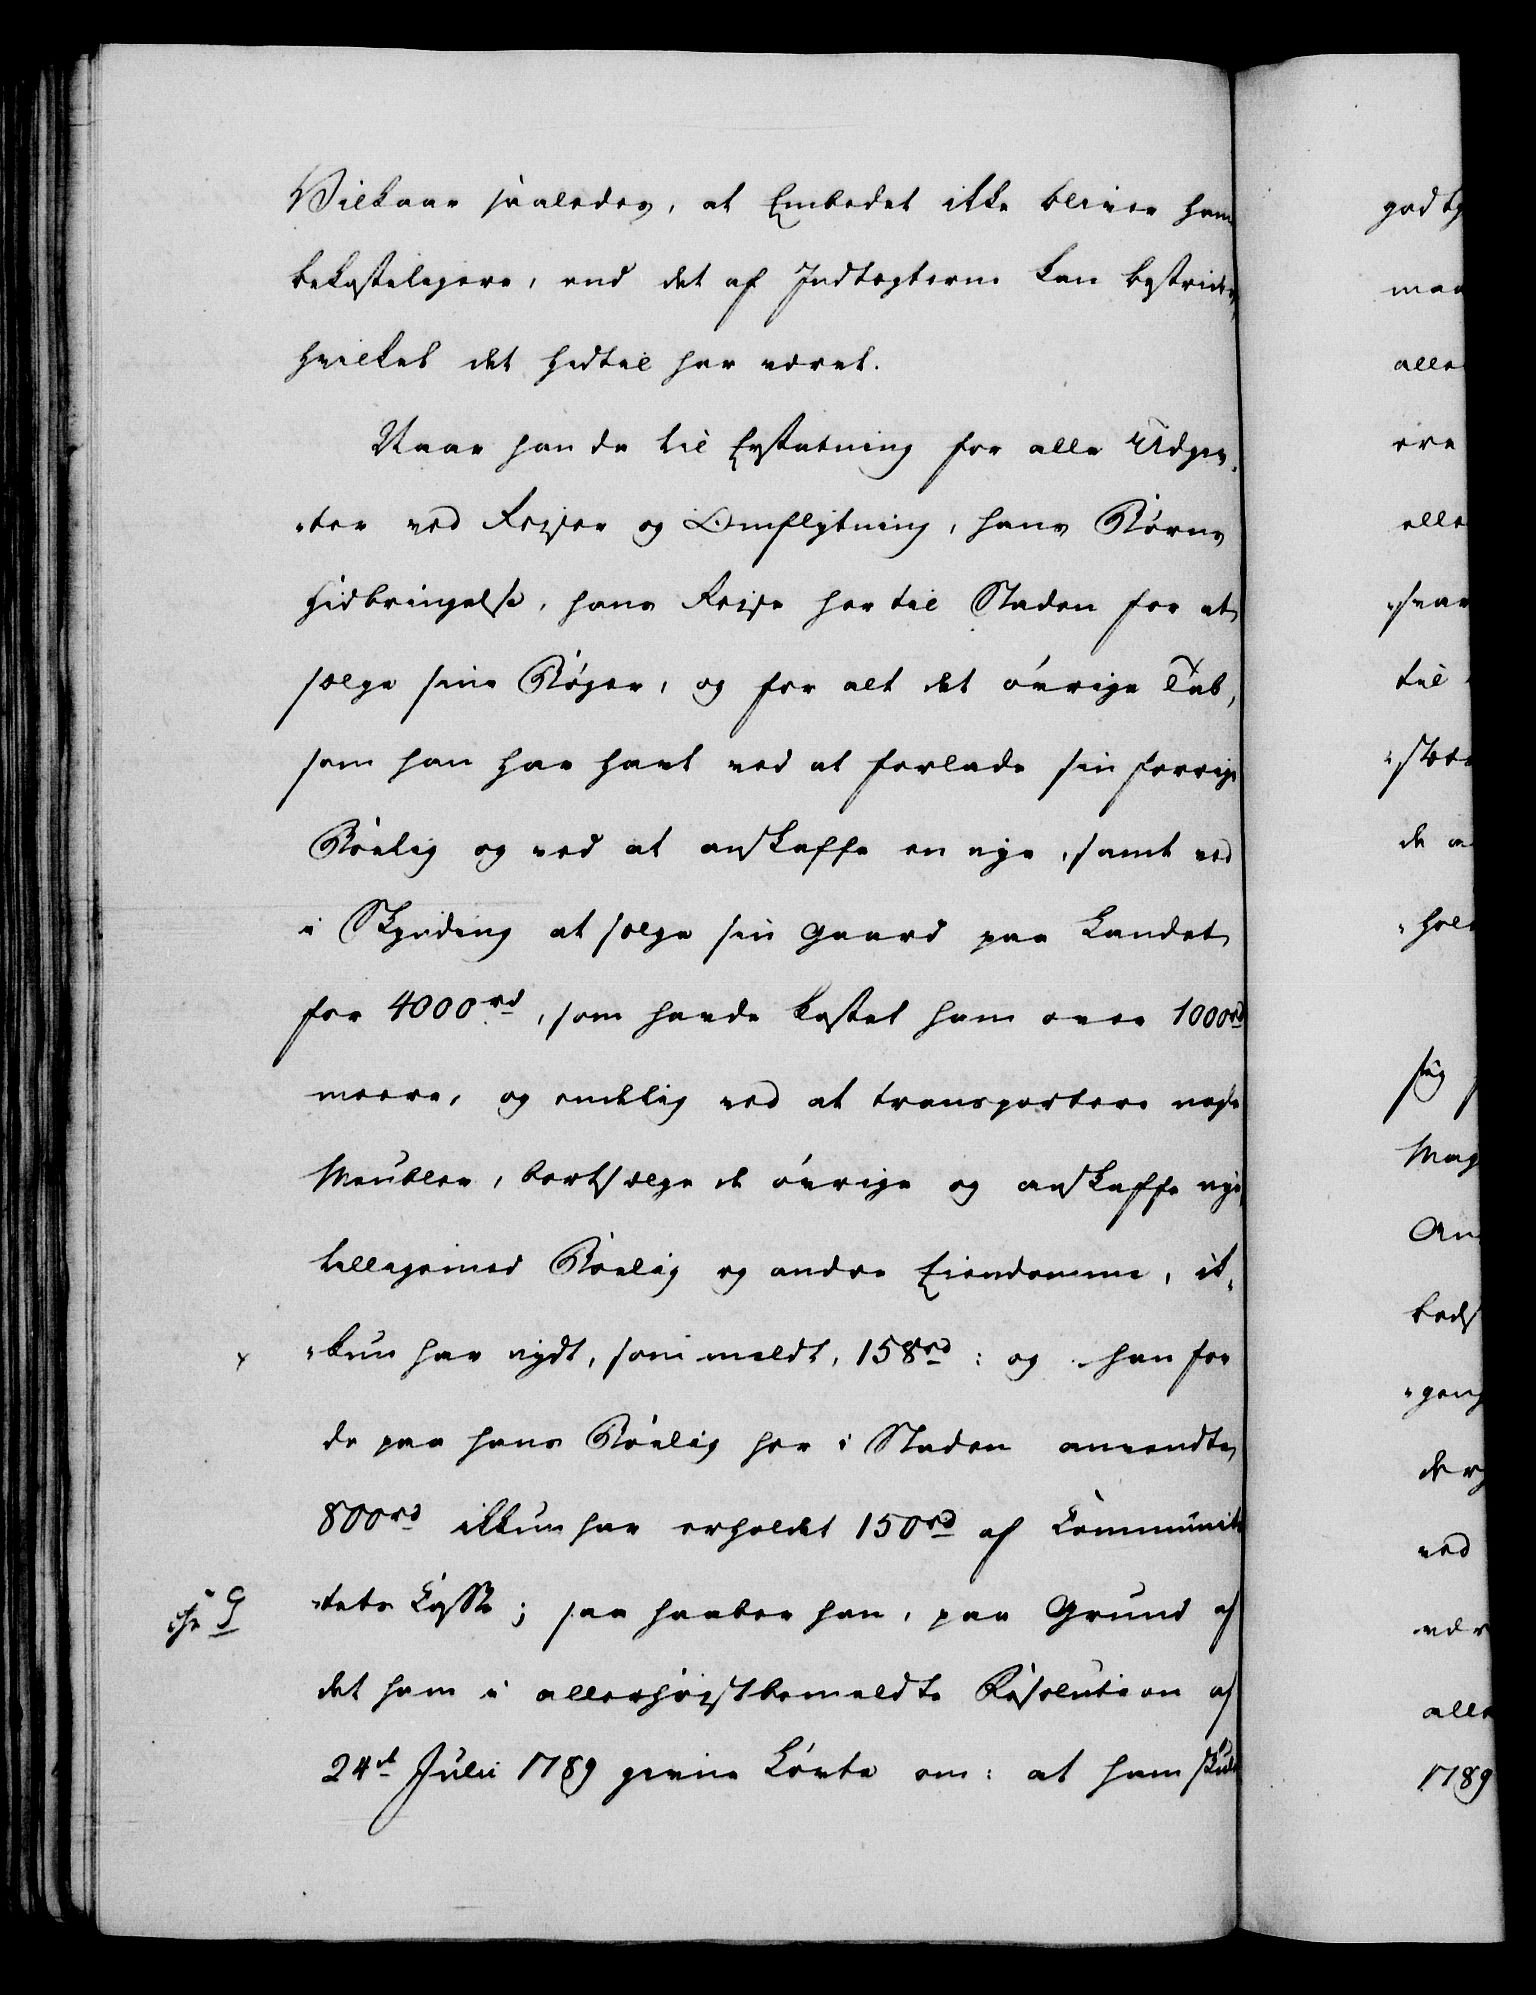 Vilkaar saaledes, at Embedet ikke bliver ham
bekosteligere, end det af Indtægterne kan bestrides,
hvilket det hidtil har været.
Naar han da til Erstatning for alle Udgiv-
-ter ved Reiser og Omflytning, hans Børns
Hidbringelse, hans Reise her til Staden for at
sælge sine Bøger, og for alt det øvrige Tab,
som han har havt ved at forlade sin forrige
Boelig og ved at anskaffe en nye, samt ved
i Skynding at sælge sin Gaard paa Landet
for 4000 rd, som havde kostet ham over 1000 rd
meere, og endelig ved at transportere nogle
Meubler, bortsælge de øvrige og anskaffe nye,
tilligemed Boelig og andre Eiendomme, ik-
-kun har nydt, som meldt, 158 rd: og han for
de paa hans Boelig her i Staden anvendte
800 rd ikkun har erholdet 150 rd af Communite
-tets Casse; saa haaber han, paa Grund af
det ham i allerhøistbemeldte Resolution af
24de Julii 1789 givne Løvte om: at ham skulle